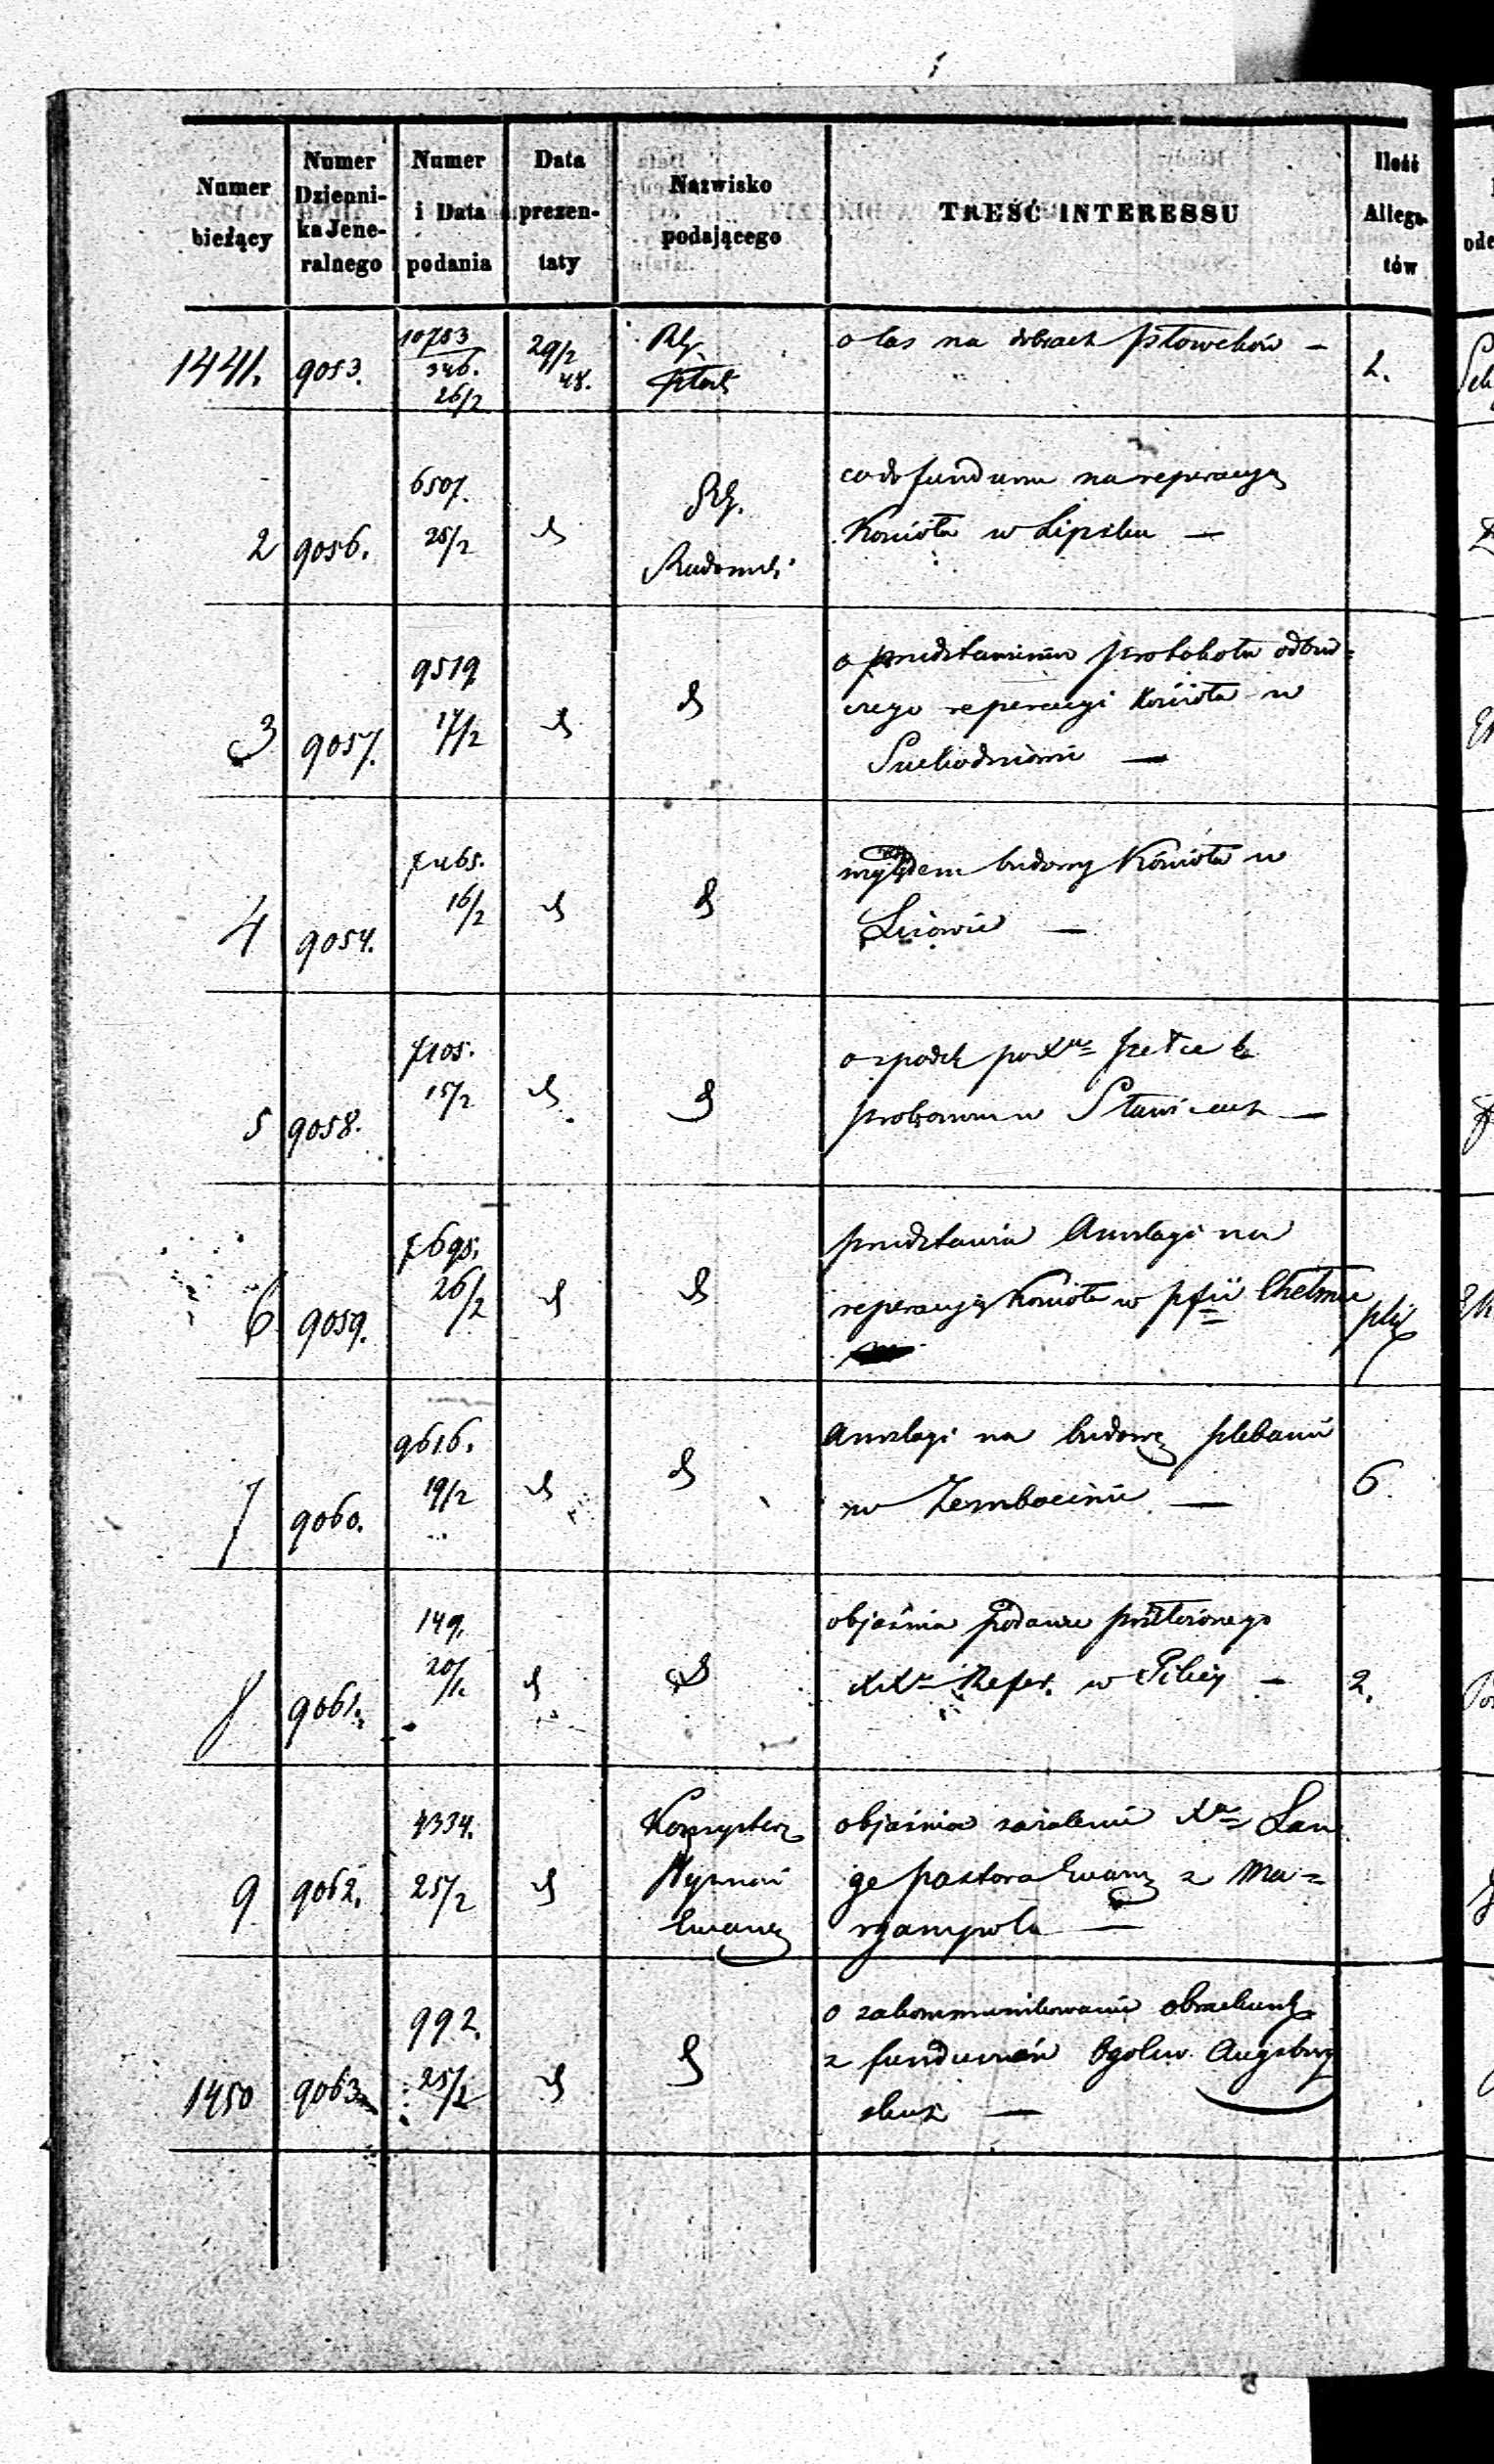 Numer bieżący | Numer Dziennika Jeneralnego | Numer i Data podania | Data prezentaty | Nazwisko podającego | TREŚĆ INTERESSU | Ilość Allegatów
1441. | 9053. | 10753 346. 26/2 | 29/2 48. | RG. Płock | o las na dobrach
2 | 9056. | 6507. 25/2 | RG. | co do funduszu na reperacyą
Kościoła w Lipsku —
3 | 9057. | 9519 17/2 | o przedstawienie protokołu odbior=
czego reperacyi Kościoła w
Suchedniowie —
4 | 9054. | 7465. 16/2 | względem budowy Kościoła w
5 | 9058. | 7105. 15/2 | o spadek po
proboszczu w
6 | 9059. | 7695. 26/2 | przedstawia Anszlagi na
reperacyą Kościoła w Chełmie
7 | 9060. | 9616. 19/2 | Anszlagi na budowę plebanii | 6
w Zembocinie —
8 | 9061. | 149. 20/2 | objaśnia podanie przełożonego
Refor. w Pilicy — | 2.
9 | 9062. | 4334. 25/2 | Konsystorz | objaśnia zażalenie Xa Lan
Ewang | ge pastora Ewang z Ma=
ryampola —
1450 | 9063 | 992. 25/2 | o zakommunikowanie
z funduszów Augsburg
skich —